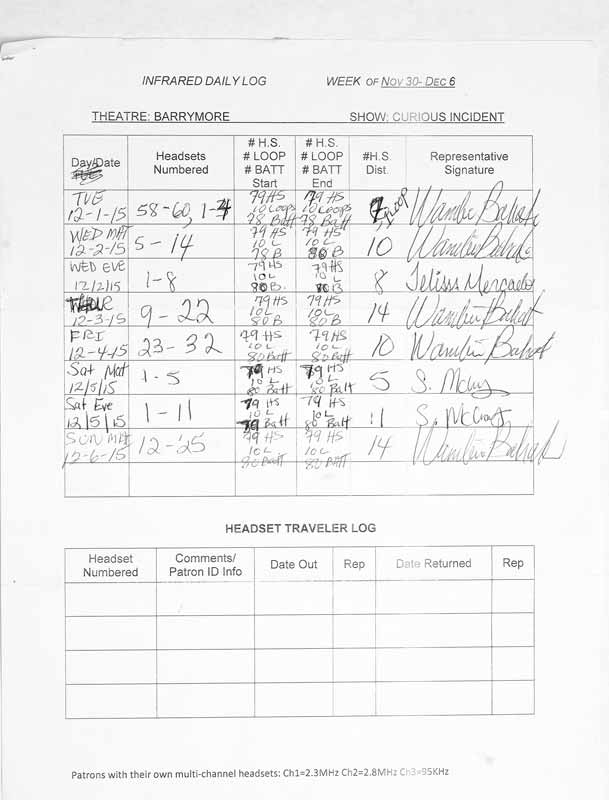 INFRARED DAILY LOG WEEK OF NOV 30- DEC 6
THEATRE: BARRYMORE SHOW: CURIOUS INCIDENT
Day/Date Headsets Numbered # H.S. # LOOP # BATT Start # H.S. # LOOP # BATT End #H.S. Dist. Representative Signature
TUE 12-1-15 58-60, 1-4 79HS 10 Loops 78 Batt 79HS 10 Loops 78 Batt 7 LOOP
WED MAT 12-2-15 5-14 79 HS 10 L 78 B 79 HS 10 L 80 B 10
WED EVE 12/2/15 1-8 79HS 10 L 80 B. 79HS 10 L 80 B 8 Jelissa Mercado
12-3-15 9-22 79HS 10L 80 B 79HS 10L 80 B 14
FRI 12-4-15 23-32 79 HS 10 L 80 Batt 79 HS 10 L 80 Batt 10
Sat Mat 12/5/15 1-5 79 HS 10 L 80 Batt 79 HS 10 L 80 Batt 5
Sat Eve 12/5/15 1-11 79 HS 10 L 79 Batt 79 HS 10 L 80 Batt 11
SUN MAT 12-6-15 12-25 79 HS 10 L 80 Batt 79 HS 10 L 80 BATT 14
HEADSET TRAVELER LOG
Headset Numbered Comments/ Patron ID Info Date Out Rep Date Returned Rep
Patrons with their own multi-channel headsets: Ch1=2.3MHz Ch2=2.8MHz Ch3=95KHz